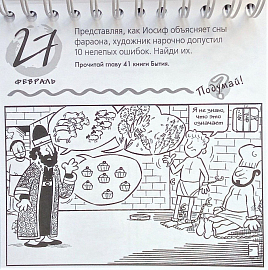 27
ФЕВРАЛЬ
Представляя, как Иосиф объясняет сны
фараона, художник нарочно допустил
10 нелепых ошибок. Найди их.
Прочитай главу 41 книги Бытия.
Подумай!
Я знаю,
что это
означает